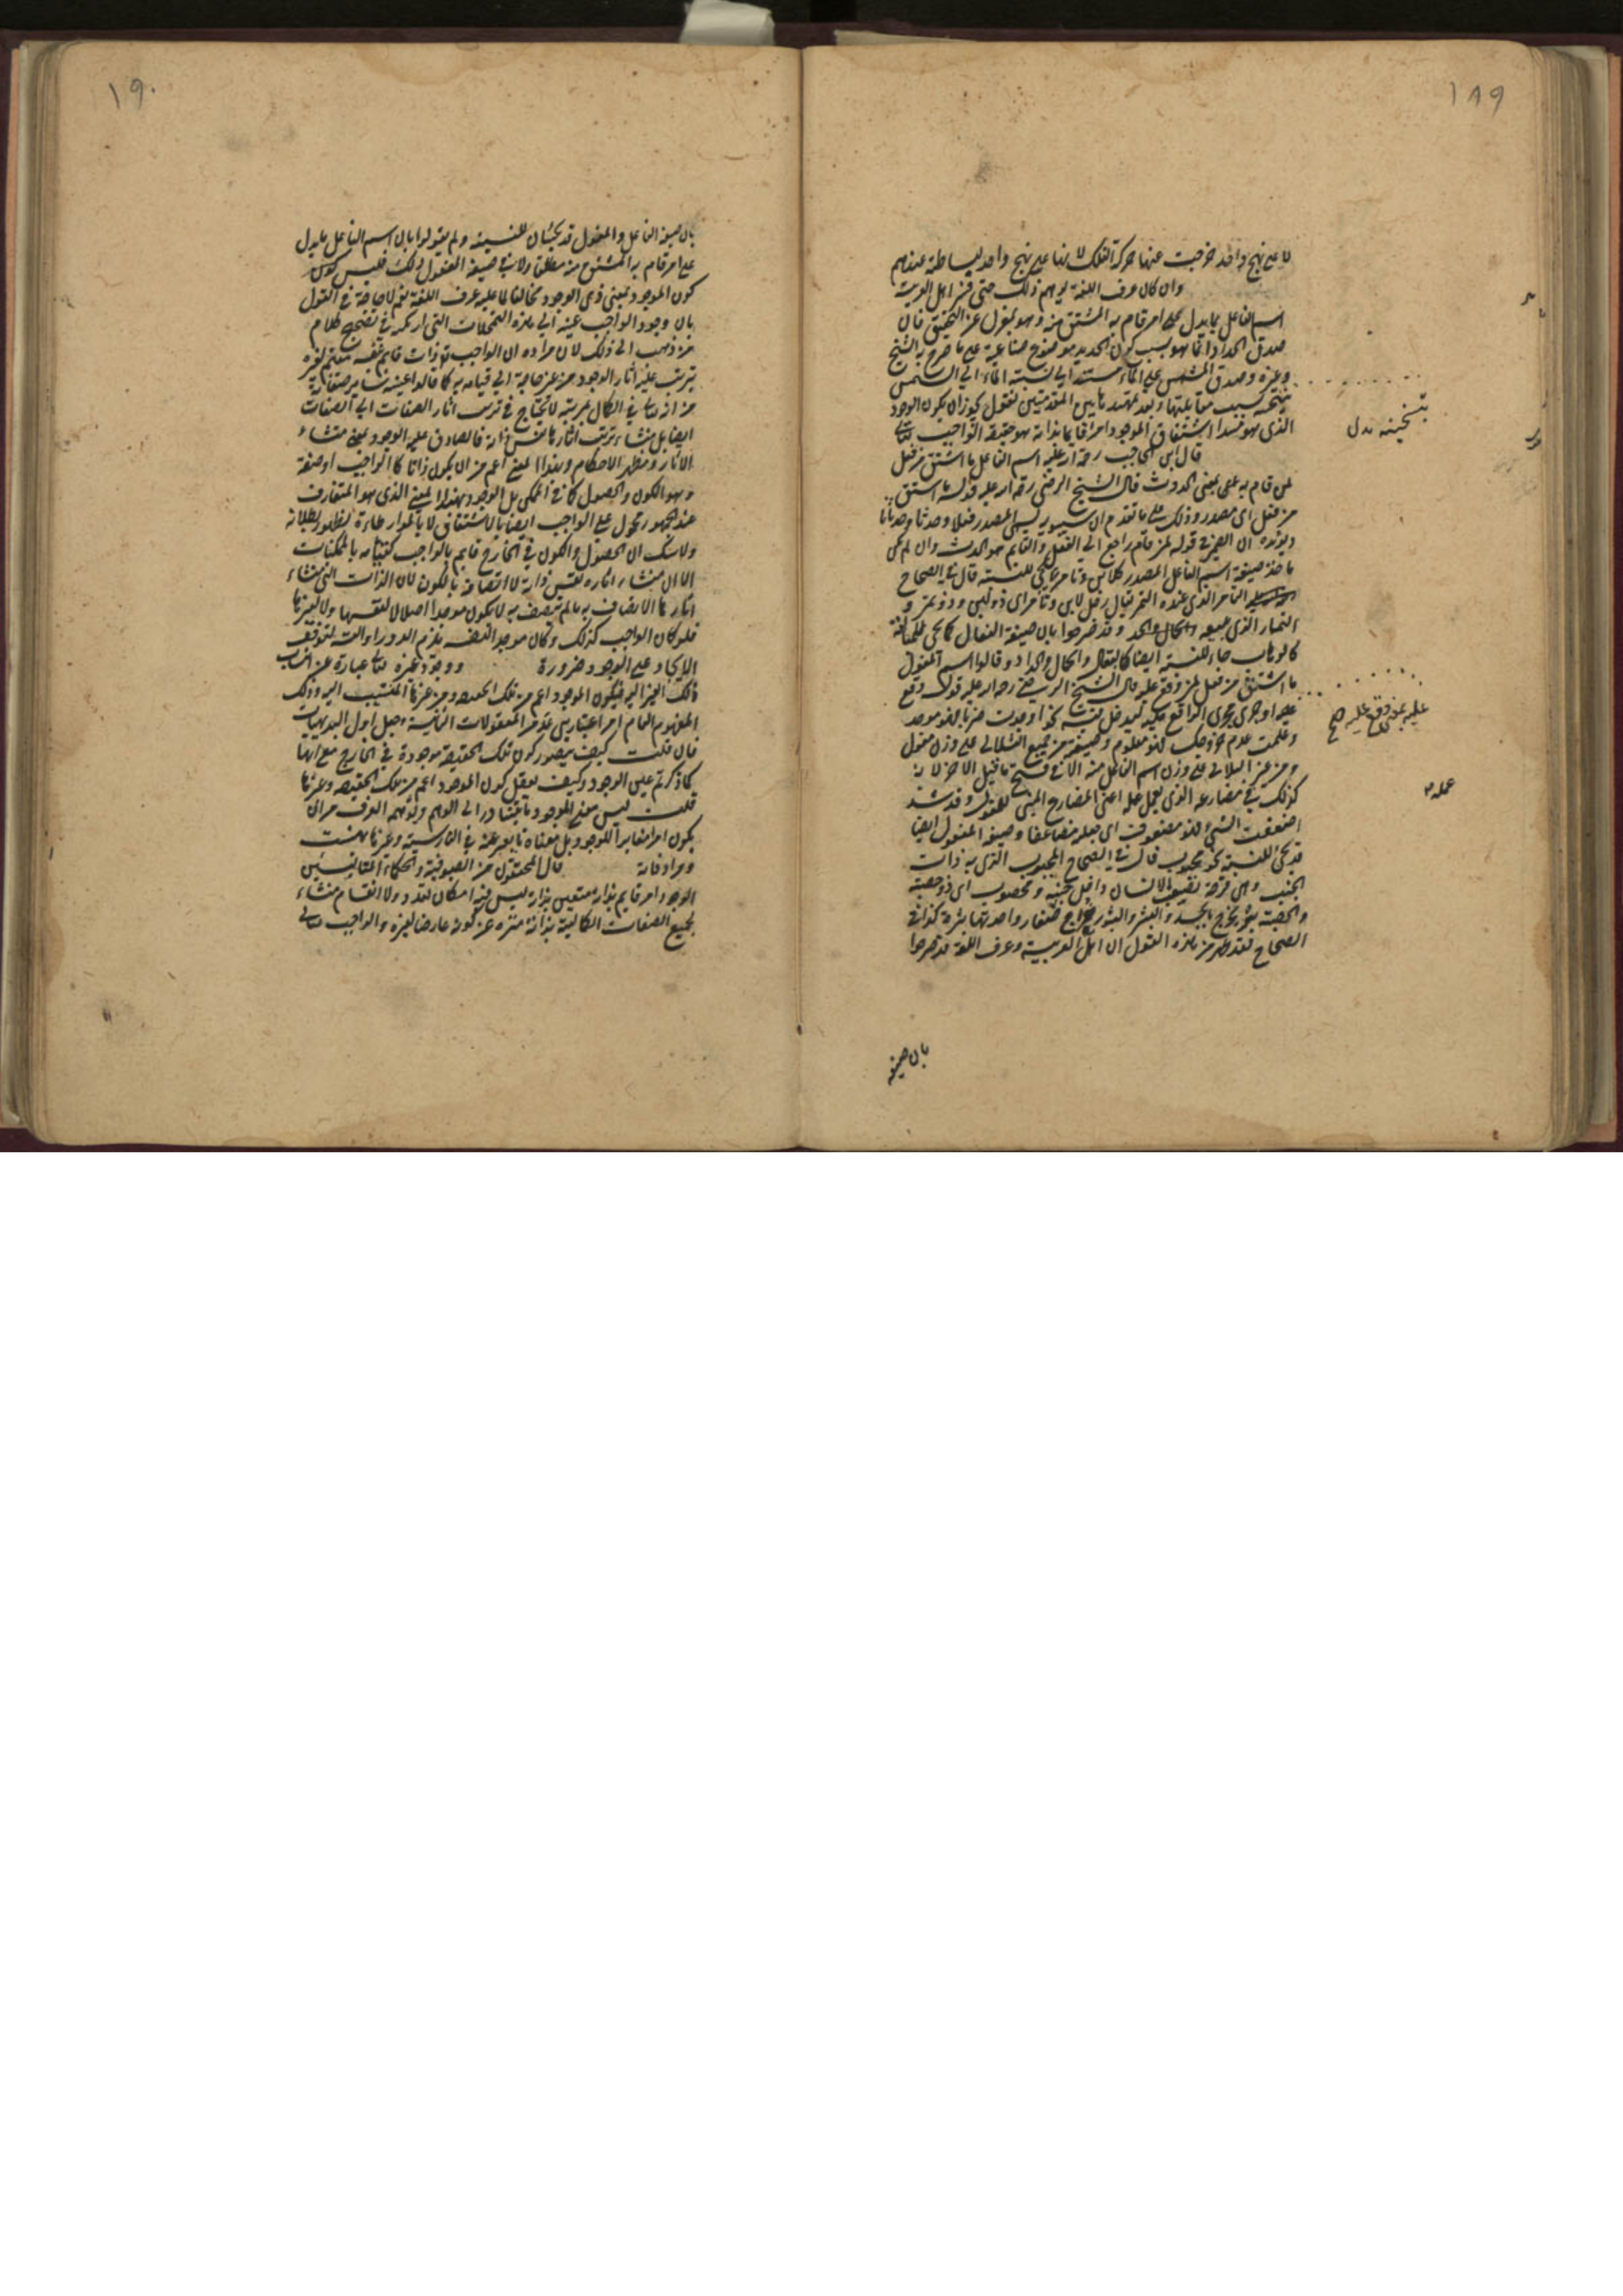 ١٨٩
لا على نهج واحد خرجت عنها حركة الفلك لانها على نهج واحد لبساطة عندهم
وان كان عرف اللغة يوهم ذلك حتى فسر اهل العربية
اسم الفاعل بما يدل على امر قام به المشتق منه وهو بمعزل عن التحقيق فان
صدق الحداد انما هو بسبب كون الحديد موضوع صناعية على ما صرح به الشيخ
وغيره وصدق المشمس على الماء مستند الى نسبة الماء الى الشمس
بتسخينه بسبب مقابلتها وبعد تمهيد هاتين المقدمتين نقول يجوز ان يكون الوجود
الذي هو مبدا اشتقاق الموجود امرا قايما بذاته هو حقيقة الواجب تعالى
قال ابن الحاجب رحمه الله عليه اسم الفاعل ما اشتق من فعل
لمن قام به بمعنى الحدوث قال الشيخ الرضي رحمه الله عليه قوله ما اشتق
من فعل اى مصدر وذلك على ما تقدم ان سيبويه يسمى المصدر فعلا وحدثا وحدثانا
ويؤيده ان الضمير في قوله لمن قام راجع الى الفعل والقايم هو الحدث وان لم يكن
ماخذ صيغة اسم الفاعل المصدر كلابن وتامر يجئ للنسبة قال في الصحاح
التامر الذي عنده التمر يقال رجل لابن وتامر اى ذو لبن وذو تمر و
التمار الذي يبيعه وقد صرحوا بان صيغة الفعال كما يجئ للمبالغة
كالوهاب جاء للنسبة ايضا كالبقال والحداد وقالوا اسم المفعول
ما اشتق من فعل لمن وقع عليه قال الشيخ الرضي رحمه الله عليه قوله وقع
عليه او جرى مجرى الواقع عليه ليدخل فيه نحو اوجدت ضربا فهو موجد
وعلمت عدم خروجك فهو معلوم وصيغته من جميع الثلاثي على وزن مفعول
ومن غير الثلاثي على وزن اسم الفاعل منه الا في فتح ما قبل الاخر لانه
كذلك في مضارعه الذي يعمل عمله اعنى المضارع المبنى للمفعول وقد شذ
اضعفت الشئ فهو مضعوف اى جعله مضاعفا وصيغة المفعول ايضا
قد يجئ للنسبة نحو مجنوب قال في الصحاح المجنوب الذي به ذات
الجنب وهى قرحة تصيب الانسان داخل جنبه ومحصوب اى ذو حصبة
والحصبة بثر يخرج بالجسد والبثر والبثور خراج صغار واحدتها بثرة كذا في
الصحاح فقد ظهر من هذه النقول ان اهل العربية وعرف اللغة قد صرحوا
بتسخينه بدل
عليه بمعنى وقع عليه صح
عمله
بان صيغة
١٩٠
بان صيغة الفاعل والمفعول قد تجيئان للنسبة ولم يقولوا بان اسم الفاعل ما يدل
على امر قام به المشتق منه مطلقا ولا في صيغة المفعول ذلك فليس كون
كون الموجود بمعنى ذى الوجود مخالفا لما عليه عرف اللغة نعم لا حاجة في القول
بان وجود الواجب عينه الى هذه التمحلات التى ارتكبه في تصحيح كلام
من ذهب الى ذلك لان مراده ان الواجب تع ذات قايم بنفسه مقيم لغيره
يترتب عليه اثار الوجود من غير حاجة الى قيامه به كما قالوا عينية ساير صفاته
من انه تعالى في الكمال بمرتبة لا يحتاج في ترتب اثار الصفات الى الصفات
ايضا بل منشاء ترتب اثارها نفس ذاته فالصادق عليه الوجود بمعنى منشاء
الاثار ومظهر الاحكام وهذا المعنى اعم من ان يكون ذاتا كالواجب او صفة
وهو الكون والحصول كما في الممكن بل الوجود بهذا المعنى الذي هو المتعارف
عند الجمهور محمول على الواجب ايضا بالاشتقاق لا بالمواطاة لظهور بطلانه
ولا شك ان الحصول والكون في الخارج قايم بالواجب كقيامه بالممكنات
الا ان منشاء اثاره نفس ذاته لا اتصافه بالكون لان الذات التى منشاء
اثارها الاتصاف به ما لم تتصف به لا يكون موجدا اصلا لا لنفسها ولا لغيرها
فلو كان الواجب كذلك وكان موجدا لنفسه يلزم الدور او التسلسل لتوقف
الايجاد على الوجود ضرورة ووجود غيره تعالى عبارة عن انتساب
ذلك الغير اليه فيكون الموجود اعم من تلك الحقيقة ومن غيرها المنتسب اليه وذلك
المفهوم العام امر اعتبارى عد من المعقولات الثانية وجعل اول البديهيات
فان قلت كيف يتصور كون تلك الحقيقة موجودة في الخارج مع انها
كما ذكرتم عين الوجود وكيف يعقل كون الموجود اعم من تلك الحقيقة وغيرها
قلت ليس معنى الموجود ما يتبادر الى الوهم ويوهمه العرف من ان
يكون امرا مغايرا للوجود بل معناه ما يعبر عنه في الفارسية وغيرها بهست
ومرادفاته قال المحققون من الصوفية والحكماء المتالهين
الوجود امر قايم بذاته متعين بذاته ليس فيه امكان تعدد ولا انقسام منشاء
لجميع الصفات الكمالية بذاته منزه عن كونه عارضا لغيره والواجب تعالى